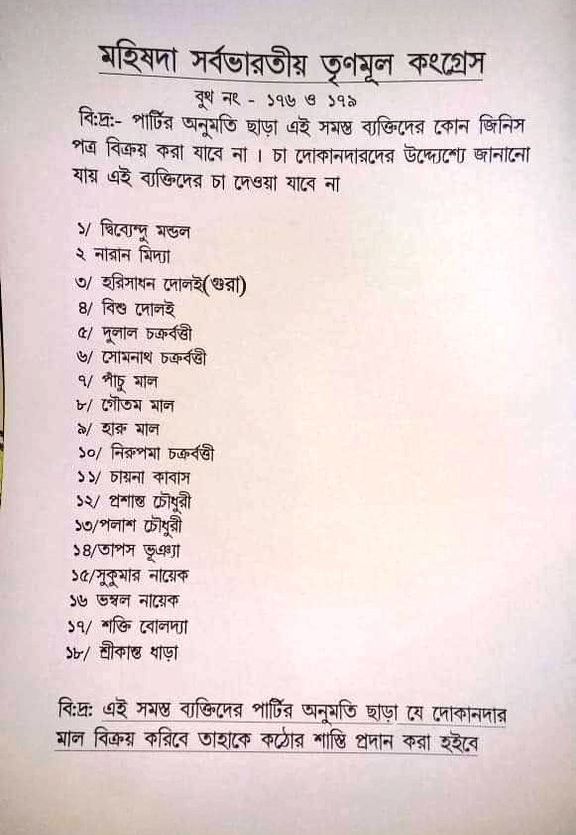 মহিষদা সর্বভারতীয় তৃণমূল কংগ্রেস
বুথ নং - ১৭৬ ও ১৭৯
বি:দ্র:- পার্টির অনুমতি ছাড়া এই সমস্ত ব্যক্তিদের কোন জিনিস
পত্র বিক্রয় করা যাবে না । চা দোকানদারদের উদ্দ্যেশ্যে জানানো
যায় এই ব্যক্তিদের চা দেওয়া যাবে না
১/ দ্বিব্যেন্দু মন্ডল
২ নারান মিদ্যা
৩/ হরিসাধন দোলই(গুরা)
৪/ বিশু দোলই
৫/ দুলাল চক্রবর্ত্তী
৬/ সোমনাথ চক্রবর্ত্তী
৭/ পাঁচু মাল
৮/ গৌতম মাল
৯/ হারু মাল
১০/ নিরুপমা চক্রবর্ত্তী
১১/ চায়না কাবাস
১২/ প্রশান্ত চৌধুরী
১৩/পলাশ চৌধুরী
১৪/তাপস ভূঞ্যা
১৫/সুকুমার নায়েক
১৬ ভম্বল নায়েক
১৭/ শক্তি বোলদ্যা
১৮/ শ্রীকান্ত ধাড়া
বি:দ্র: এই সমস্ত ব্যক্তিদের পার্টির অনুমতি ছাড়া যে দোকানদার
মাল বিক্রয় করিবে তাহাকে কঠোর শাস্তি প্রদান করা হইবে